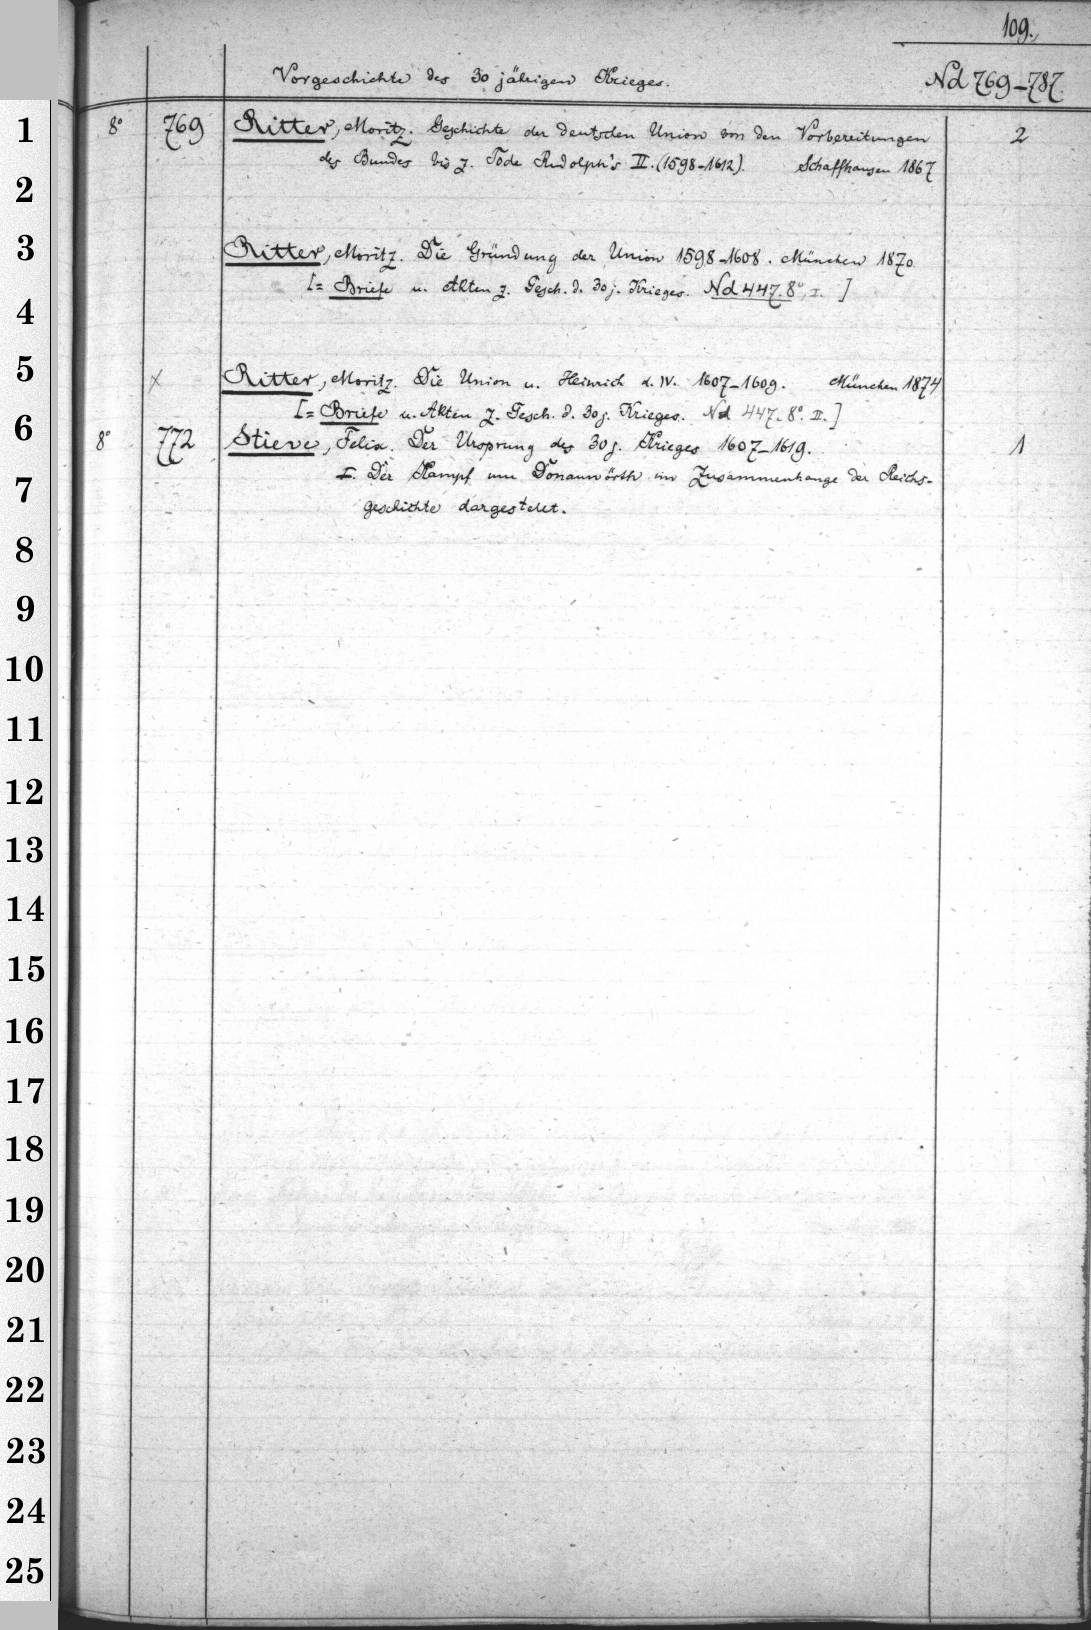 109.
Vorgeschichte des 30 jährigen Krieges. Nd 769-787.
1 8° 769 Ritter, Moritz. Geschichte der deutschen Union von den Vorbereitungen 2
des Bundes bis z. Tode Rudolph's II. (1598-1612). Schaffhausen 1867
2
3 Ritter, Moritz. Die Gründung der Union 1598-1608. München 1870
[= Briefe u. Akten z. Gesch. d. 30j. Krieges. Nd 447. 8°, I. ]
4
5 x Ritter, Moritz. Die Union u. Heinrich d. IV. 1607-1609. München 1874
[= Briefe u. Akten z. Gesch. d. 30j. Krieges. Nd 447. 8°. II. ]
6 8° 772 Stieve, Felix. Der Ursprung des 30j. Krieges 1607-1619. 1
7 I. Der Kampf um Donauwörth im Zusammenhange der Reichs-
geschichte dargestellt.
8
9
10
11
12
13
14
15
16
17
18
19
20
21
22
23
24
25